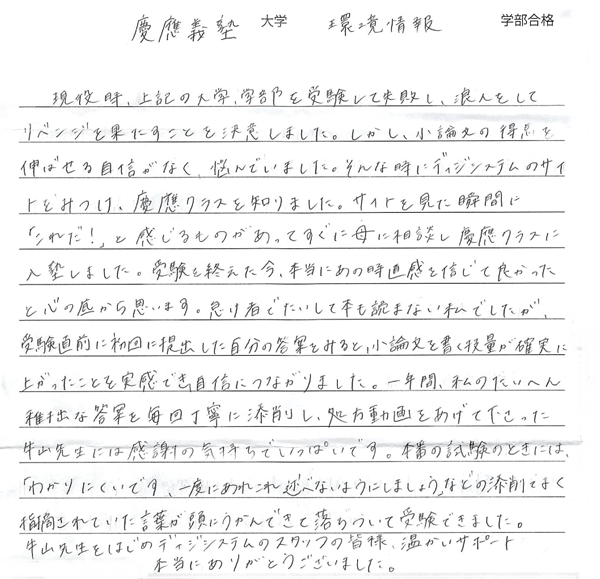 慶應義塾 大学 環境情報 学部合格
現役時、上記の大学、学部を受験して失敗し、浪人をして
リベンジを果たすことを決意しました。しかし、小論文の得点を
伸ばせる自信がなく、悩んでいました。そんな時にディジシステムのサイ
トをみつけ、慶應クラスを知りました。サイトを見た瞬間に
「これだ!」と感じるものがあってすぐに母に相談し慶應クラスに
入塾しました。受験を終えた今、本当にあの時直感を信じて良かった
と心の底から思います。怠け者でたいして本も読まない私でしたが、
受験直前に初回に提出した自分の答案をみると、小論文を書く技量が確実に
上がったことを実感でき自信につながりました。一年間、私のたいへん
稚拙な答案を毎回丁寧に添削し、処方動画をあげて下さった
牛山先生には感謝の気持ちでいっぱいです。本番の試験のときには、
「わかりにくいです、一度にあれこれ述べないようにしましょう」などの添削でよく
指摘されていた言葉が頭にうかんできて落ちついて受験できました。
牛山先生をはじめディジシステムのスタッフの皆様、温かいサポート
本当にありがとうございました。